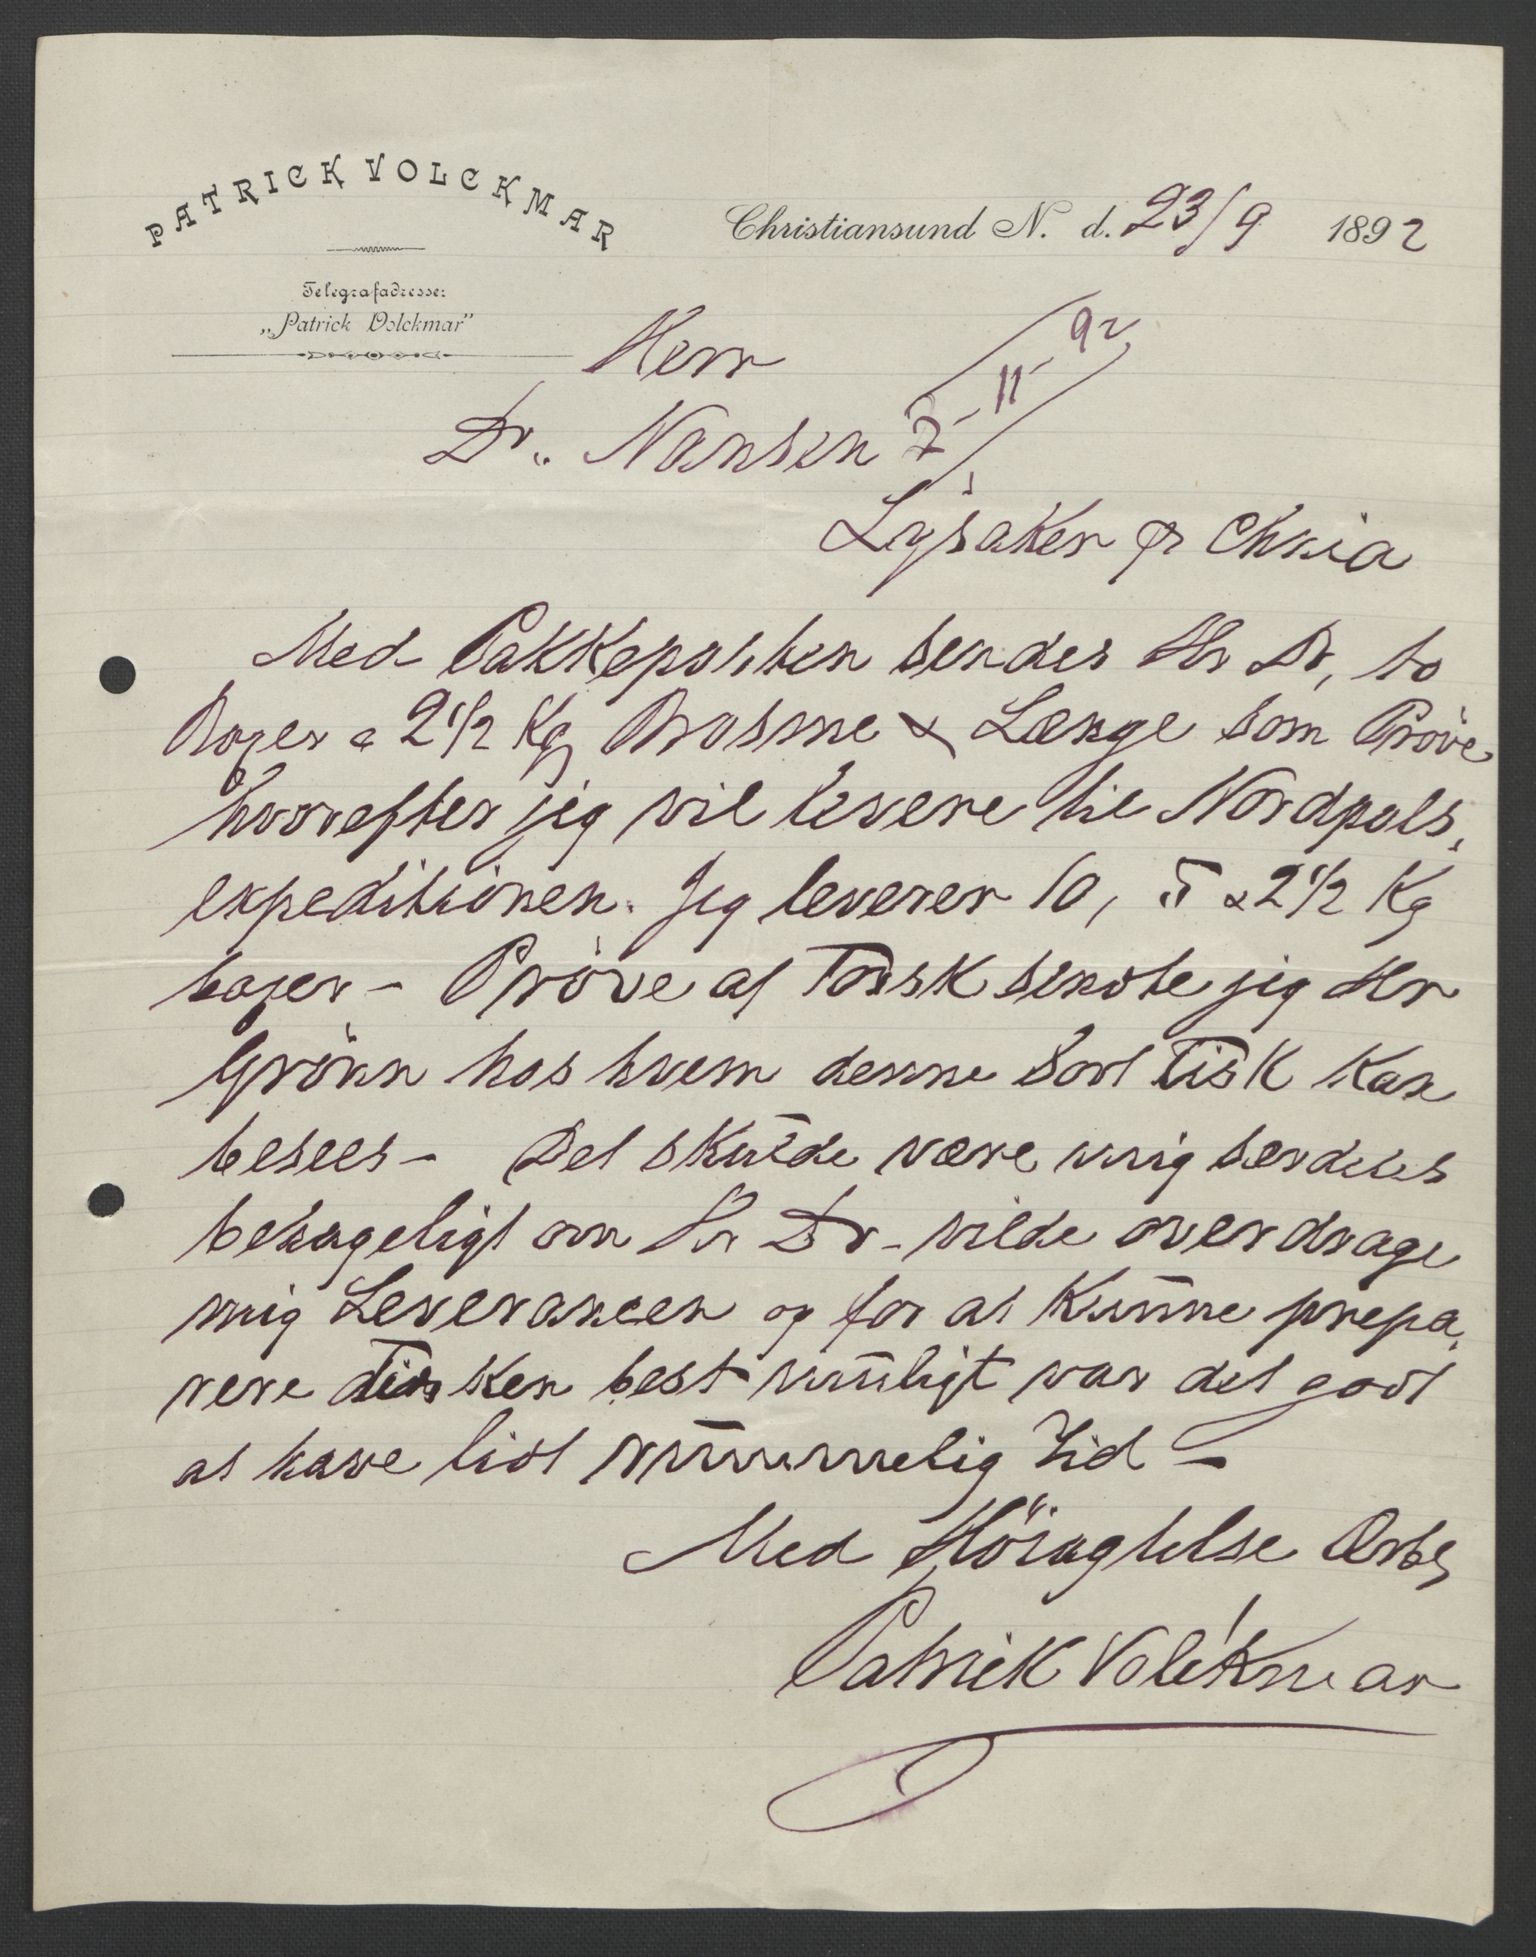 PATRICK VOLCKMAR
Telegrafadresse:
„Patrick Volckmar"
Christiansund N. d. 23/9 1892
Herr
Dr. Nansen
7-11-92
Lysaker pr Chria
Med Pakkeposten sendes Hr Dr, to
Daaser a 2 1/2 Kg Brosme & Længe som Pröve
hvorefter jeg vil levere til Nordpols,
expeditionen. Jeg leverer 10, 5 & 2 1/2 Kg
daaser - Pröve af Torsk sendte jeg Hr
Grönn hos hvem denne Sort Fisk kan
besees - Det skulde være mig særdeles
behageligt om Hr Dr. vilde overdrage
mig Leverancen og for at kunne prepa,
rere Fisken best muligt var det godt
at have lidt rummelig Tid -
Med Höiagtelse Ærb
Patrick Volckmar